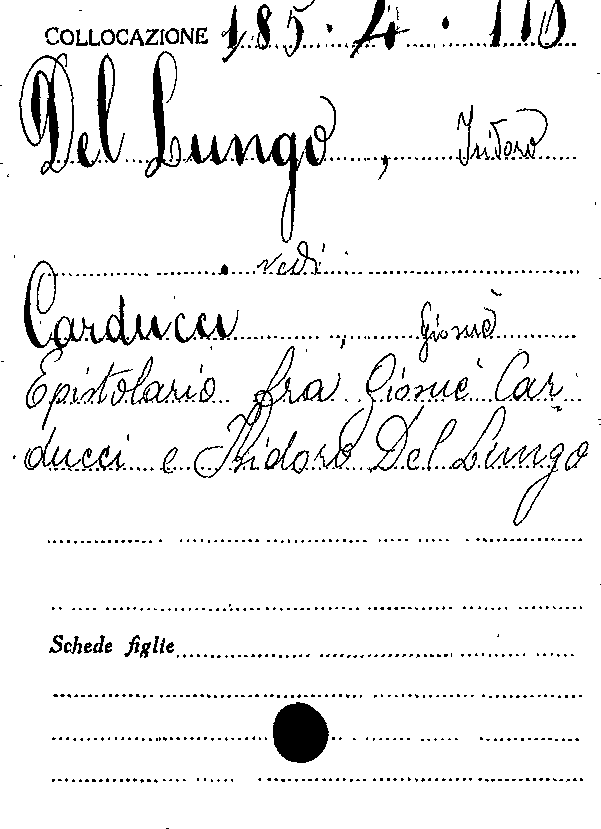 COLLOCAZIONE 185.4.110
Del Lungo, Isidoro
vedi
Carducci, Giosuè
Epistolario fra Giosuè Car
ducci e Isidoro Del Lungo
Schede figlie